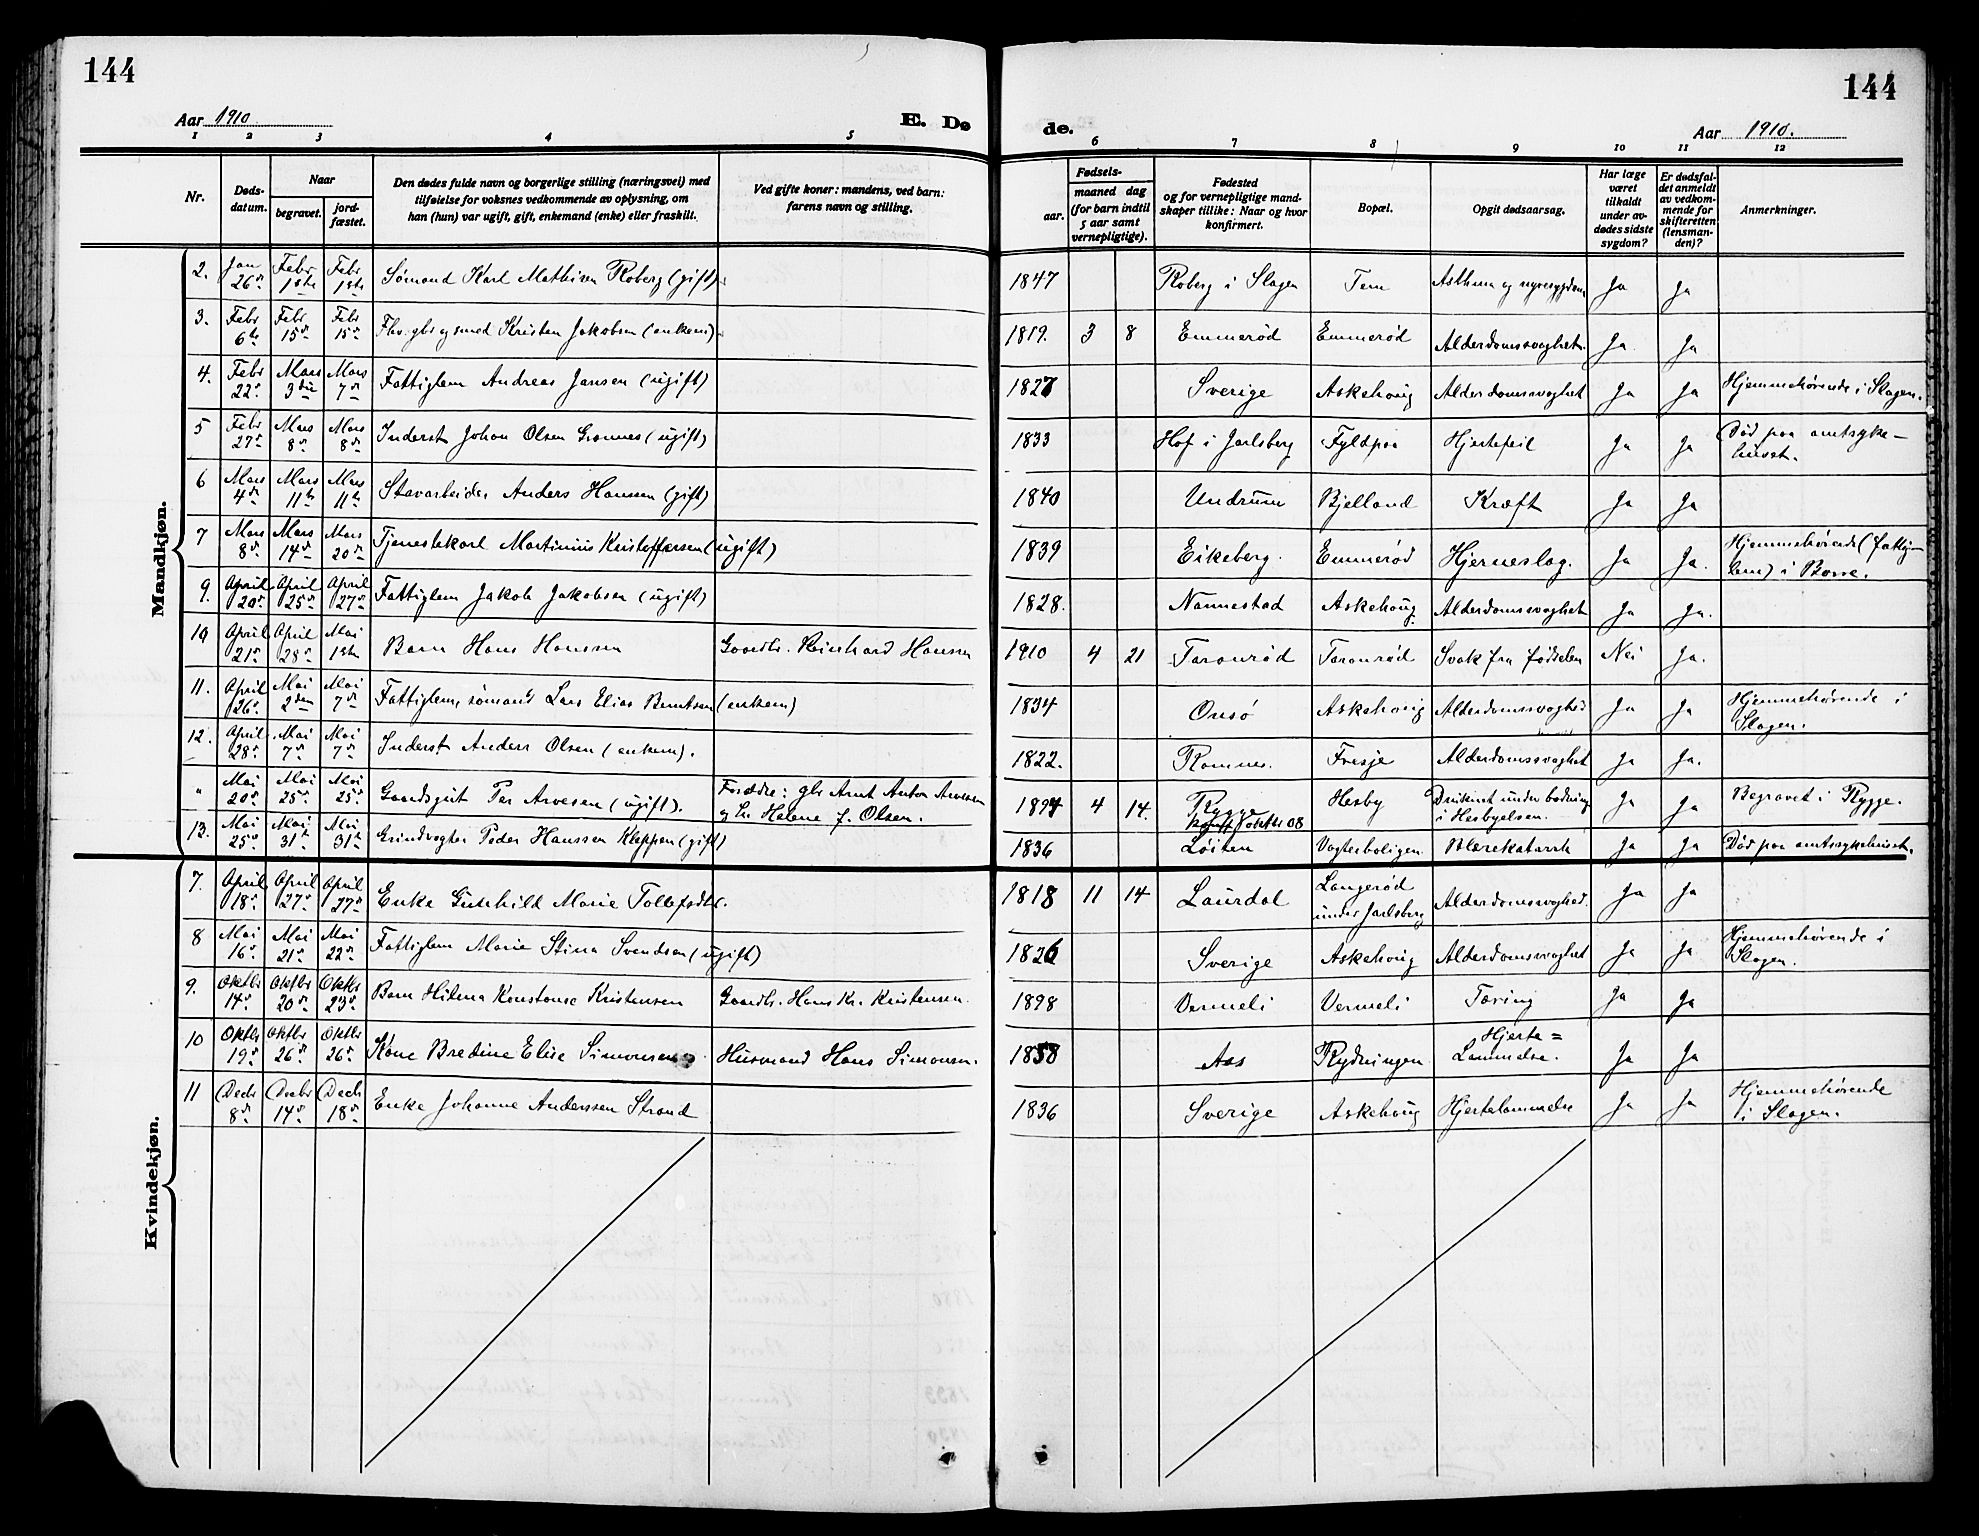 144
144
Aar 1910.
E. Dø
de.
Aar 1910.
1 2 3 4 5
6 7 8 9 10 11 12
Nr.
Døds-
datum.
Naar
begravet.
jord-
fæstet.
Den dødes fulde navn og borgerlige stilling (næringsvei) med
tilføielse for voksnes vedkommende av oplysning, om
han (hun) var ugift, gift, enkemand (enke) eller fraskilt.
Ved gifte koner: mandens, ved barn:
farens navn og stilling.
Fødsels-
aar.
maaned dag
(for barn indtil
5 aar samt
vernepligtige).
Fødested
og for vernepligtige mand-
skaper tillike: Naar og hvor
konfirmert.
Bopæl.
Opgit dødsaarsag.
Har læge
været
tilkaldt
under av-
dødes sidste
sygdom?
Er dødsfal-
det anmeldt
av vedkom-
mende for
skifteretten
(lensman-
den)?
Anmerkninger.
Mandkjøn.
2. Jan 26de Febr 1ste Febr 1ste Sømand Karl Mathisen Roberg (gift). 1847 Roberg i Slagen Tem Asthma og nyresygdom Ja Ja
3. Febr 6te Febr 15de Febr 15de Fhv. gbr og smed Kristen Jakobsen (enkem). 1819. 3 8 Emmerød Emmerød Alderdomssvaghet. Ja Ja
4. Febr 22de Mars 3die Mars 7de Fattiglem Andreas Jansen (ugift) 1827 Sverige Askehoug Alderdomssvaghet Ja Ja Hjemmehørende i Slagen.
5 Febr 27de Mars 8de Mars 8de Inderst Johan Olsen Grønnes (ugift) 1833 Hof i Jarlsberg Fyldpaa Hjertefeil Ja Ja Død paa amtsyke-
huset.
6 Mars 4de Mars 11te Mars 11te Stavarbeider Anders Hansen (gift) 1840 Undrum Bjelland Kræft Ja Ja
7 Mars 8de Mars 14de Mars 20de Tjenestekarl Martinius Kristoffersen (ugift) 1839 Eikeberg. Emmerød Hjerneslag. Ja Ja. Hjemmehørende (fattig-
lem) i Borre.
9. April 20de April 25de April 27de Fattiglem Jakob Jakobsen (ugift) 1828. Nannestad Askehoug Alderdomssvaghet Ja Ja.
10 April 21de April 28de Mai 1ste Barn Hans Hanssen Gaardbr. Reinhard Hansen 1910 4 21 Taranrød Taranrød Svak fra fødselen Nei Ja.
11. April 26de Mai 2den Mai 7de Fattiglem, sømand Lars Elias Berntsen (enkem) 1834 Onsø Askehoug Alderdomssvaghed Ja Ja Hjemmehørende i
Slagen.
12. April 28de Mai 7de Mai 7de Inderst Anders Olsen (enkem). 1822. Ramnes. Fresje Alderdomssvaghet Ja Ja.
" Mai 20de Mai 25de Mai 25de Gaardsgut Per Arvesen (ugift). Forældre: gbr Arnt Anton Arvesen
og hr. Helene f. Olsen. 1894 4 14. Rygge
konf. oktbr 08 Hesby Druknet under badning
i Hesbyelven. Ja Ja Begravet i Rygge.
13. Mai 25de Mai 31te Mai 31te Grindvogter Peder Hanssen Kleppen (gift) 1836 Løiten Vogterboligen Blærekatarrh Ja Ja Død paa amtssykehuset.
Kvindekjøn.
7. April 18de April 27de April 27de Enke Gunhild Marie Tollefsdtr. 1818 11 14 Laurdal Langerød
under Jarlsberg Alderdomssvaghed. Ja Ja
8 Mai 16de Mai 21de Mai 22de Fattiglem Marie Stina Svendsen (ugift) 1826 Sverige Askehoug Alderdomssvaghet Ja Ja Hjemmehørende i
Slagen.
9. Oktbr 14de Oktbr 20de Oktbr 23de Barn Hilma Konstanse Kristensen Gaardb. Hans Kr. Kristensen. 1898 Vermeli Vermeli Tæring Ja Ja
10 Oktbr 19de Oktbr 26de Oktbr 26de Kone Bredine Elise Simonsen Husmand Hans Simonsen. 1858 Aas Rydningen Hjerte=
Lammelse. Ja Ja
11 Decbr 8de Decbr 14de Decbr 18de Enke Johanne Anderssen Strand 1836 Sverige Askehoug Hjertelammelse Ja Ja Hjemmehørende
i Slagen.